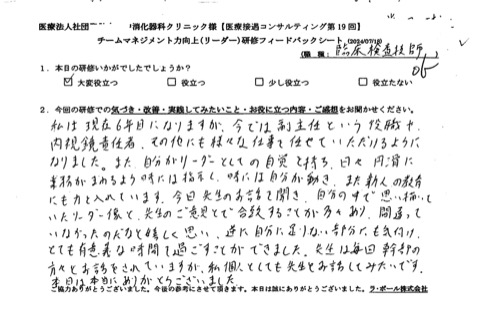 医療法人社団 消化器科クリニック様【医療接遇コンサルティング第19回】
チームマネジメント力向上(リーダー)研修フィードバックシート (2024/07/18)
(職種: 臨床検査技師 )
1．本日の研修いかがでしたでしょうか？
☑ 大変役立つ □ 役立つ □ 少し役立つ □ 役立たない
2．今回の研修での気づき・改善・実践してみたいこと・お役に立つ内容・ご感想をお聞かせください。
私は現在6年目になりますが、今では副主任という役職や、
内視鏡責任者、その他にも様々な仕事を任せていただけるように
なりました。また、自分がリーダーとしての自覚を持ち、日々円滑に
業務がまわるよう時には指示し、時には自分が動き、また新人の教育
にも力を入れています。今日先生のお話を聞き、自分の中で思い描いて
いたリーダー像と、先生のご意見とで合致することが多々あり、間違って
いなかったのだなと嬉しく思い、逆に自分に足りない部分にも気付け、
とても有意義な時間を過ごすことができました。先生は毎回幹部の
方々とお話をされていますが、私個人としても先生とお話してみたいです。
本日は本当にありがとうございました。
ご協力ありがとうございました。今後の参考にさせて頂きます。本日は誠にありがとうございました。 ラ・ポール株式会社